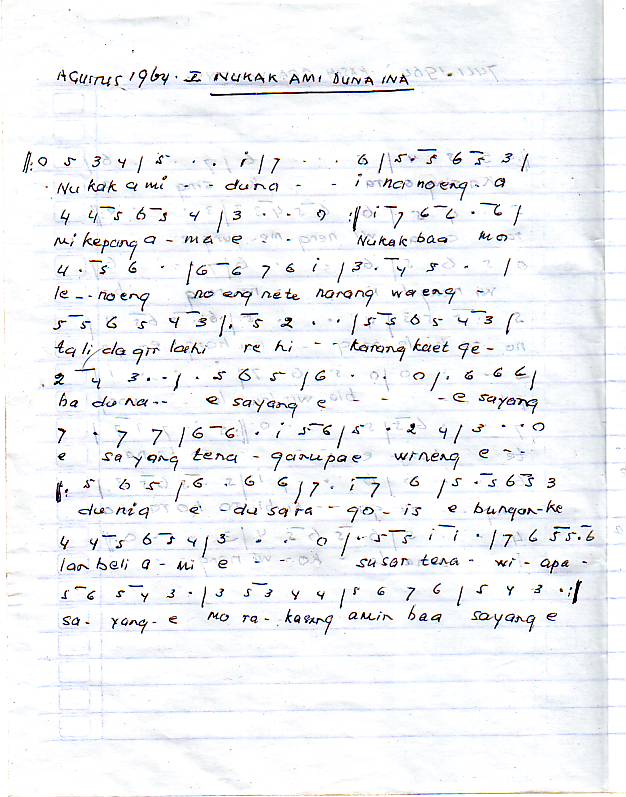 AGUSTUS 1964. I NUKAK AMI DUNA INA
‖: 0 5 3 4 | 5 · · · i | 7 · · · 6 | 5 · 5 6 5 3 |
Nukak ami - - duna - - i na noeng - a
4 4 5 6 5 4 | 3 · · 0 :‖ i 7 6 6 · 6 |
mi kepang a - ma e - - - Nukak baa mo
4 · 5 6 · | 6 6 7 6 i | 3 · 4 5 · · | 0
le - - noeng no eng nete narang waeng -
5 5 6 5 4 3 | · 5 2 · · | 5 5 6 5 4 3 |
tali dagir laehi re hi - - karang kaet ge -
2 4 3 · · | · 5 6 5 | 6 · 0 · 0 | · 6 6 6 |
ba duna - - e sayang e - - - e sayang
7 · 7 7 | 6 6 · i 5 6 | 5 · 2 4 | 3 · · 0
e sayang tena - garupae wineng e - -
‖: 5 | 6 5 | 6 · 6 6 | 7 · i 7 6 | 5 · 5 6 5 3
dunia e du sara - go - is e bungan - ke
4 4 5 6 5 4 | 3 · · 0 | · 5 5 i i · | 7 6 5 5 · 6
lan beli a - mi e - - - susar tena - wi - apa -
5 6 5 4 3 · | 3 5 3 4 4 | 5 6 7 6 | 5 4 3 · :‖
sa - yang - e mo ra - kasang amin baa sayang e